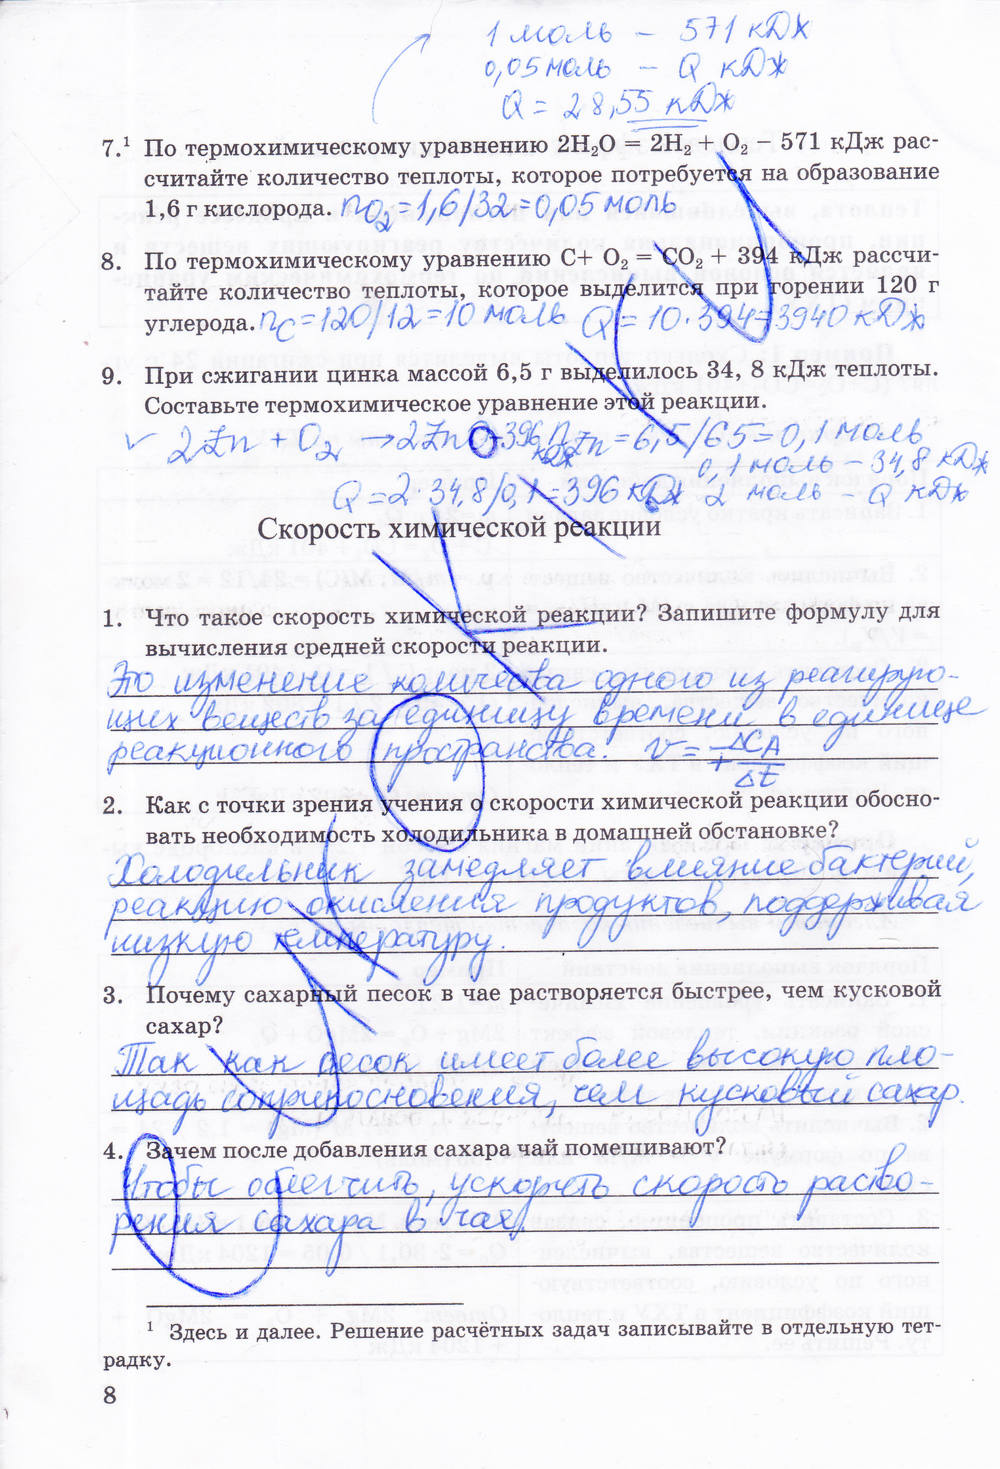 1 моль – 571 кДж
0,05 моль – Q кДж
Q = 28,55 кДж
7.¹ По термохимическому уравнению 2H₂O = 2H₂ + O₂ – 571 кДж рас-
считайте количество теплоты, которое потребуется на образование
1,6 г кислорода. nO₂ = 1,6/32 = 0,05 моль
8. По термохимическому уравнению C+ O₂ = CO₂ + 394 кДж рассчи-
тайте количество теплоты, которое выделится при горении 120 г
углерода. nC = 120/12 = 10 моль Q = 10·394 = 3940 кДж
9. При сжигании цинка массой 6,5 г выделилось 34, 8 кДж теплоты.
Составьте термохимическое уравнение этой реакции.
2Zn + O₂ → 2ZnO + 396 кДж nZn = 6,5/65 = 0,1 моль
0,1 моль – 34,8 кДж
Q = 2·34,8/0,1 = 396 кДж 2 моль – Q кДж
Скорость химической реакции
1. Что такое скорость химической реакции? Запишите формулу для
вычисления средней скорости реакции.
Это изменение количества одного из реагирую-
щих веществ за единицу времени в единице
реакционного пространства V = ± ΔCA / Δt
2. Как с точки зрения учения о скорости химической реакции обосно-
вать необходимость холодильника в домашней обстановке?
Холодильник замедляет влияние бактерий,
реакцию окисления продуктов, поддерживая
низкую температуру.
3. Почему сахарный песок в чае растворяется быстрее, чем кусковой
сахар?
Так как песок имеет более высокую пло-
щадь соприкосновения, чем кусковый сахар.
4. Зачем после добавления сахара чай помешивают?
Чтобы облегчить, ускорить скорость раство-
рения сахара в чая.
¹ Здесь и далее. Решение расчётных задач записывайте в отдельную тет-
радку.
8